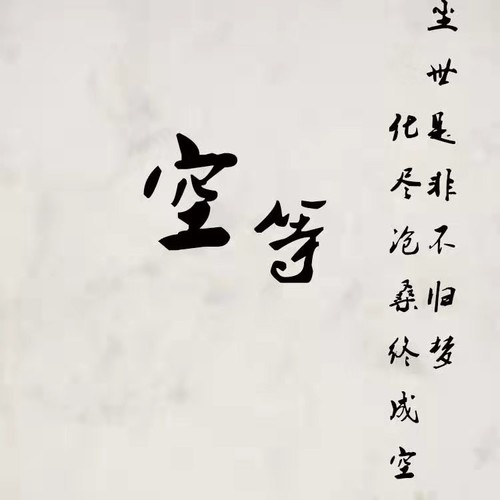 尘世是非不归梦
化尽沧桑终成空
空等